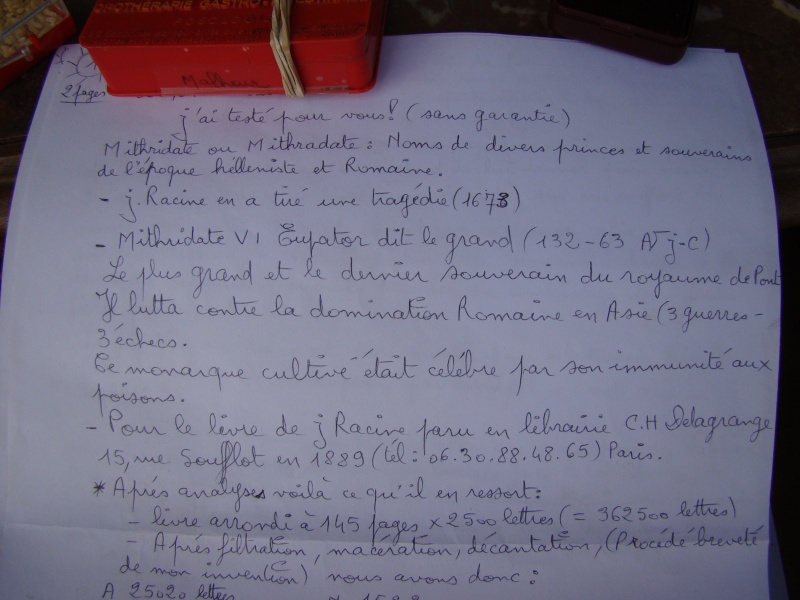 OROTHÉRAPIE GASTRO
Malheur
2 pages
j'ai testé pour vous! (sans garantie)
Mithridate ou Mithradate : Noms de divers princes et souverains
de l'époque hélleniste et Romaine.
- j. Racine en a tiré une tragédie (1673)
- Mithridate VI Eupator dit le grand (132-63 AV j-C)
Le plus grand et le dernier souverain du royaume de Pont
Il lutta contre la domination Romaine en Asie (3 guerres -
3 échecs.
Ce monarque cultivé était célébre par son immunité aux
poisons.
- Pour le livre de j Racine paru en librairie C.H Delagrange
15, rue Soufflot en 1889 (tél: 06.30.88.48.65) Paris.
* Aprés analyses voilà ce qu'il en ressort:
- livre arrondi à 145 pages x 2500 lettres (= 362500 lettres)
- Aprés filtration, macération, décantation, (Procédé breveté
de mon invention) nous avons donc :
A 25020 lettres